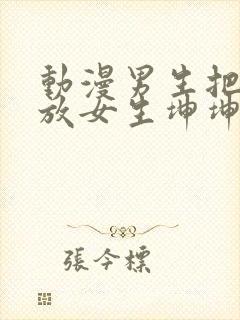 動漫男生把
放女生坤坤
張今標